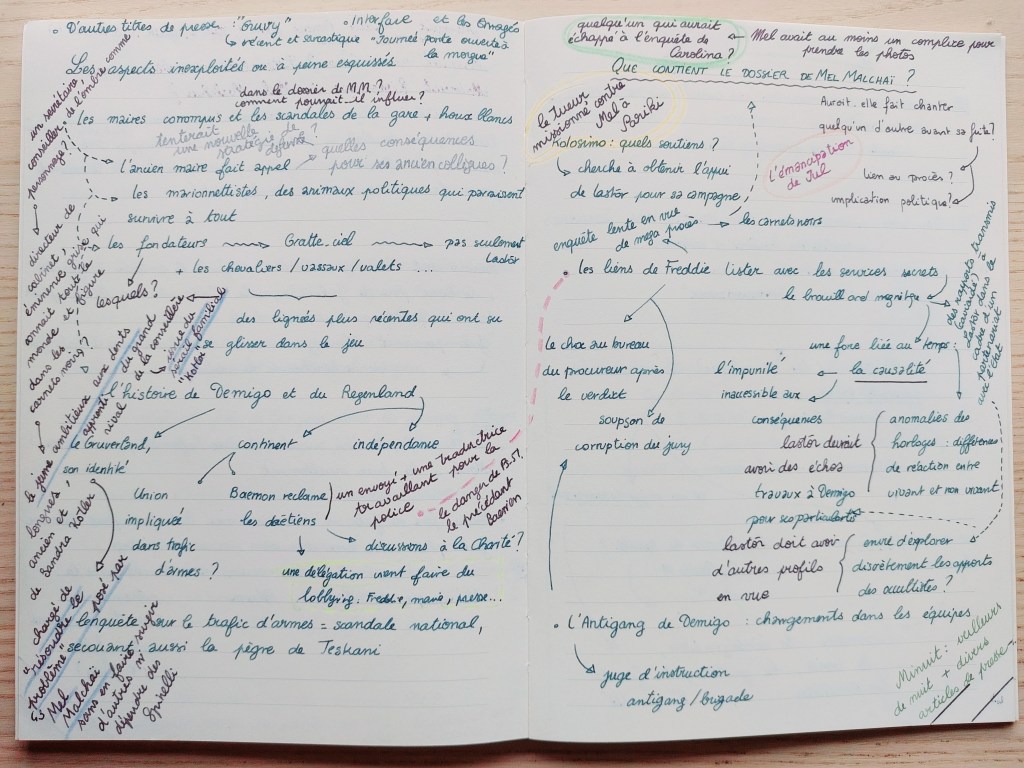 D'autres titres de presse : "Gruvy"
récent et sarcastique "Journée porte ouverte à la morgue"
Interface et les Enragés
Les aspects inexploités ou à peine esquissés
dans le dossier de M.M ?
comment pourrait-il influer ?
les maires corrompus et les scandales de la gare + houx blancs
tenterait une nouvelle stratégie de défense ?
l'ancien maire fait appel
quelles conséquences
pour ses anciens collègues ?
les marionnettistes, des animaux politiques qui paraissent
survivre à tout
les fondateurs
Gratte-ciel
pas seulement
Lastor
+ les chevaliers / vassaux / valets ...
lesquels ?
des lignées plus récentes qui ont su
se glisser dans le jeu
l'histoire de Demigo et du Regenland
le Gruverland,
son identité
continent
indépendance
Union
impliquée
dans trafic
d'armes ?
Baemon réclame
les daëtiens
un envoyé + une traductrice
travaillant pour la
police
le danger de B.M.
le précédent
Baemon
discussions à la Charité ?
une délégation vient faire du
lobbying. Freddie, mairie, presse...
l'enquête sur le trafic d'armes = scandale national,
secouant aussi la pègre de Teskani
un secrétaire,
conseiller, de l'ombre comme
personnage ?
directeur de
cabinet,
éminence grise qui
connaît toute
monde et figure
dans les
carnets noirs ?
le jeune ambitieux aux dents
longues, apprenti du grand
ancien et rival de la conseillère
de Sandra Kotler
issue du
cercle familial
"Kotei"
chargé de
"résoudre le
problème" posé par
Mel
Malchaï
sans en faire surgir
d'autres ni
dépendre des
Spinelli
quelqu'un qui aurait
échappé à l'enquête de
Carolina ?
Mel avait au moins un complice pour
prendre les photos
QUE CONTIENT LE DOSSIER DE MEL MALCHAÏ ?
le tueur
missionné contre
Mel à
Boriki
Auroit-elle fait chanter
quelqu'un d'autre avant sa fuite ?
lien au procès ?
implication politique ?
L'émancipation
de Jul
Kolosimo : quels soutiens ?
cherche à obtenir l'appui
de Lastor pour sa campagne
enquête lente en vue
de mega procès
les carnets noirs
les liens de Freddie Lister avec les services secrets
le brouillard magnétique
des rapports transmis
à
Lastor dans le
cadre d'un
partenariat
avec l'Etat
le choc au bureau
du procureur après
le verdict
soupçon de
corruption du jury
une force liée au temps :
la causalité
l'impunité
inaccessible aux
conséquences
Lastor devrait
avoir des échos
travaux à Demigo
anomalies des
horloges : différences
de réaction entre
vivant et non vivant
Lastor doit avoir
d'autres profils
en vue
envie d'explorer
discrètement les apports
des occultistes ?
L'Antigang de Demigo : changements dans les équipes
juge d'instruction
antigang / brigade
Minuit : veilleurs
de nuit + divers
articles de presse